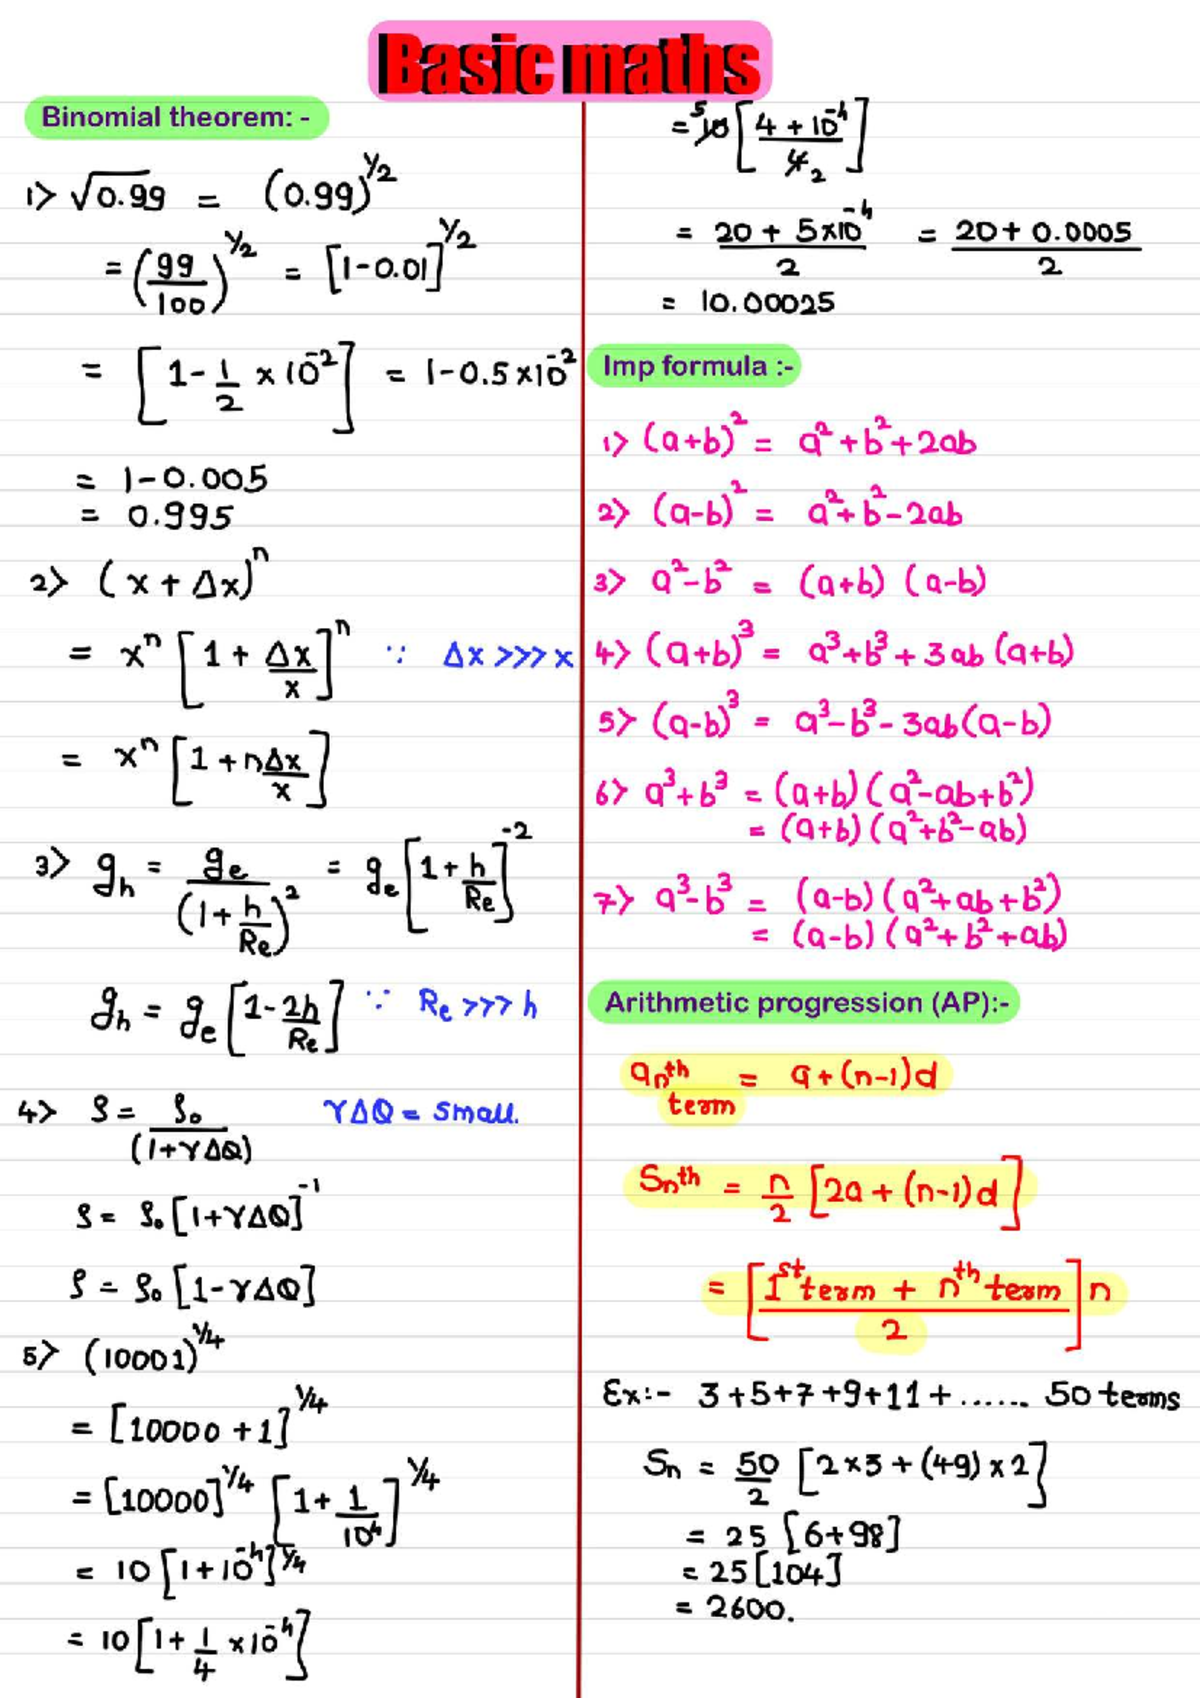 Basic maths
Binomial theorem: -
1> √0.99 = (0.99)^1/2
= (99/100)^1/2 = [1-0.01]^1/2
= [1 - 1/2 × 10^-2] = 1-0.5×10^-2
= 1-0.005
= 0.995
2> (x + Δx)^n
= x^n [1 + Δx/x]^n ∵ Δx >>> x
= x^n [1 + nΔx/x]
3> g_h = g_e/(1+h/Re)^2 = g_e [1+h/Re]^-2
g_h = g_e [1-2h/Re] ∵ Re >>> h
4> ρ = ρ₀/(1+γΔθ) γΔθ = small.
ρ = ρ₀ [1+γΔθ]^-1
ρ = ρ₀ [1-γΔθ]
5> (10001)^1/4
= [10000 +1]^1/4
= [10000]^1/4 [1+ 1/10^4]^1/4
= 10 [1+10^-4]^1/4
= 10 [1+ 1/4 ×10^-4]
= 5 10 [4 + 10^-4/4 2]
= 20 + 5×10^-4/2 = 20+ 0.0005/2
= 10.00025
Imp formula :-
1> (a+b)^2 = a^2+b^2+2ab
2> (a-b)^2 = a^2+b^2-2ab
3> a^2-b^2 = (a+b) (a-b)
4> (a+b)^3 = a^3+b^3+3ab (a+b)
5> (a-b)^3 = a^3-b^3-3ab(a-b)
6> a^3+b^3 = (a+b)(a^2-ab+b^2)
= (a+b)(a^2+b^2-ab)
7> a^3-b^3 = (a-b)(a^2+ab+b^2)
= (a-b)(a^2+b^2+ab)
Arithmetic progression (AP):-
a_n^th term = a+(n-1)d
S_n^th = n/2 [2a + (n-1)d]
= [1^st term + n^th term/2] n
Ex:- 3+5+7+9+11+...... 50 terms
Sn = 50/2 [2×3+(49)×2]
= 25 [6+98]
= 25[104]
= 2600.